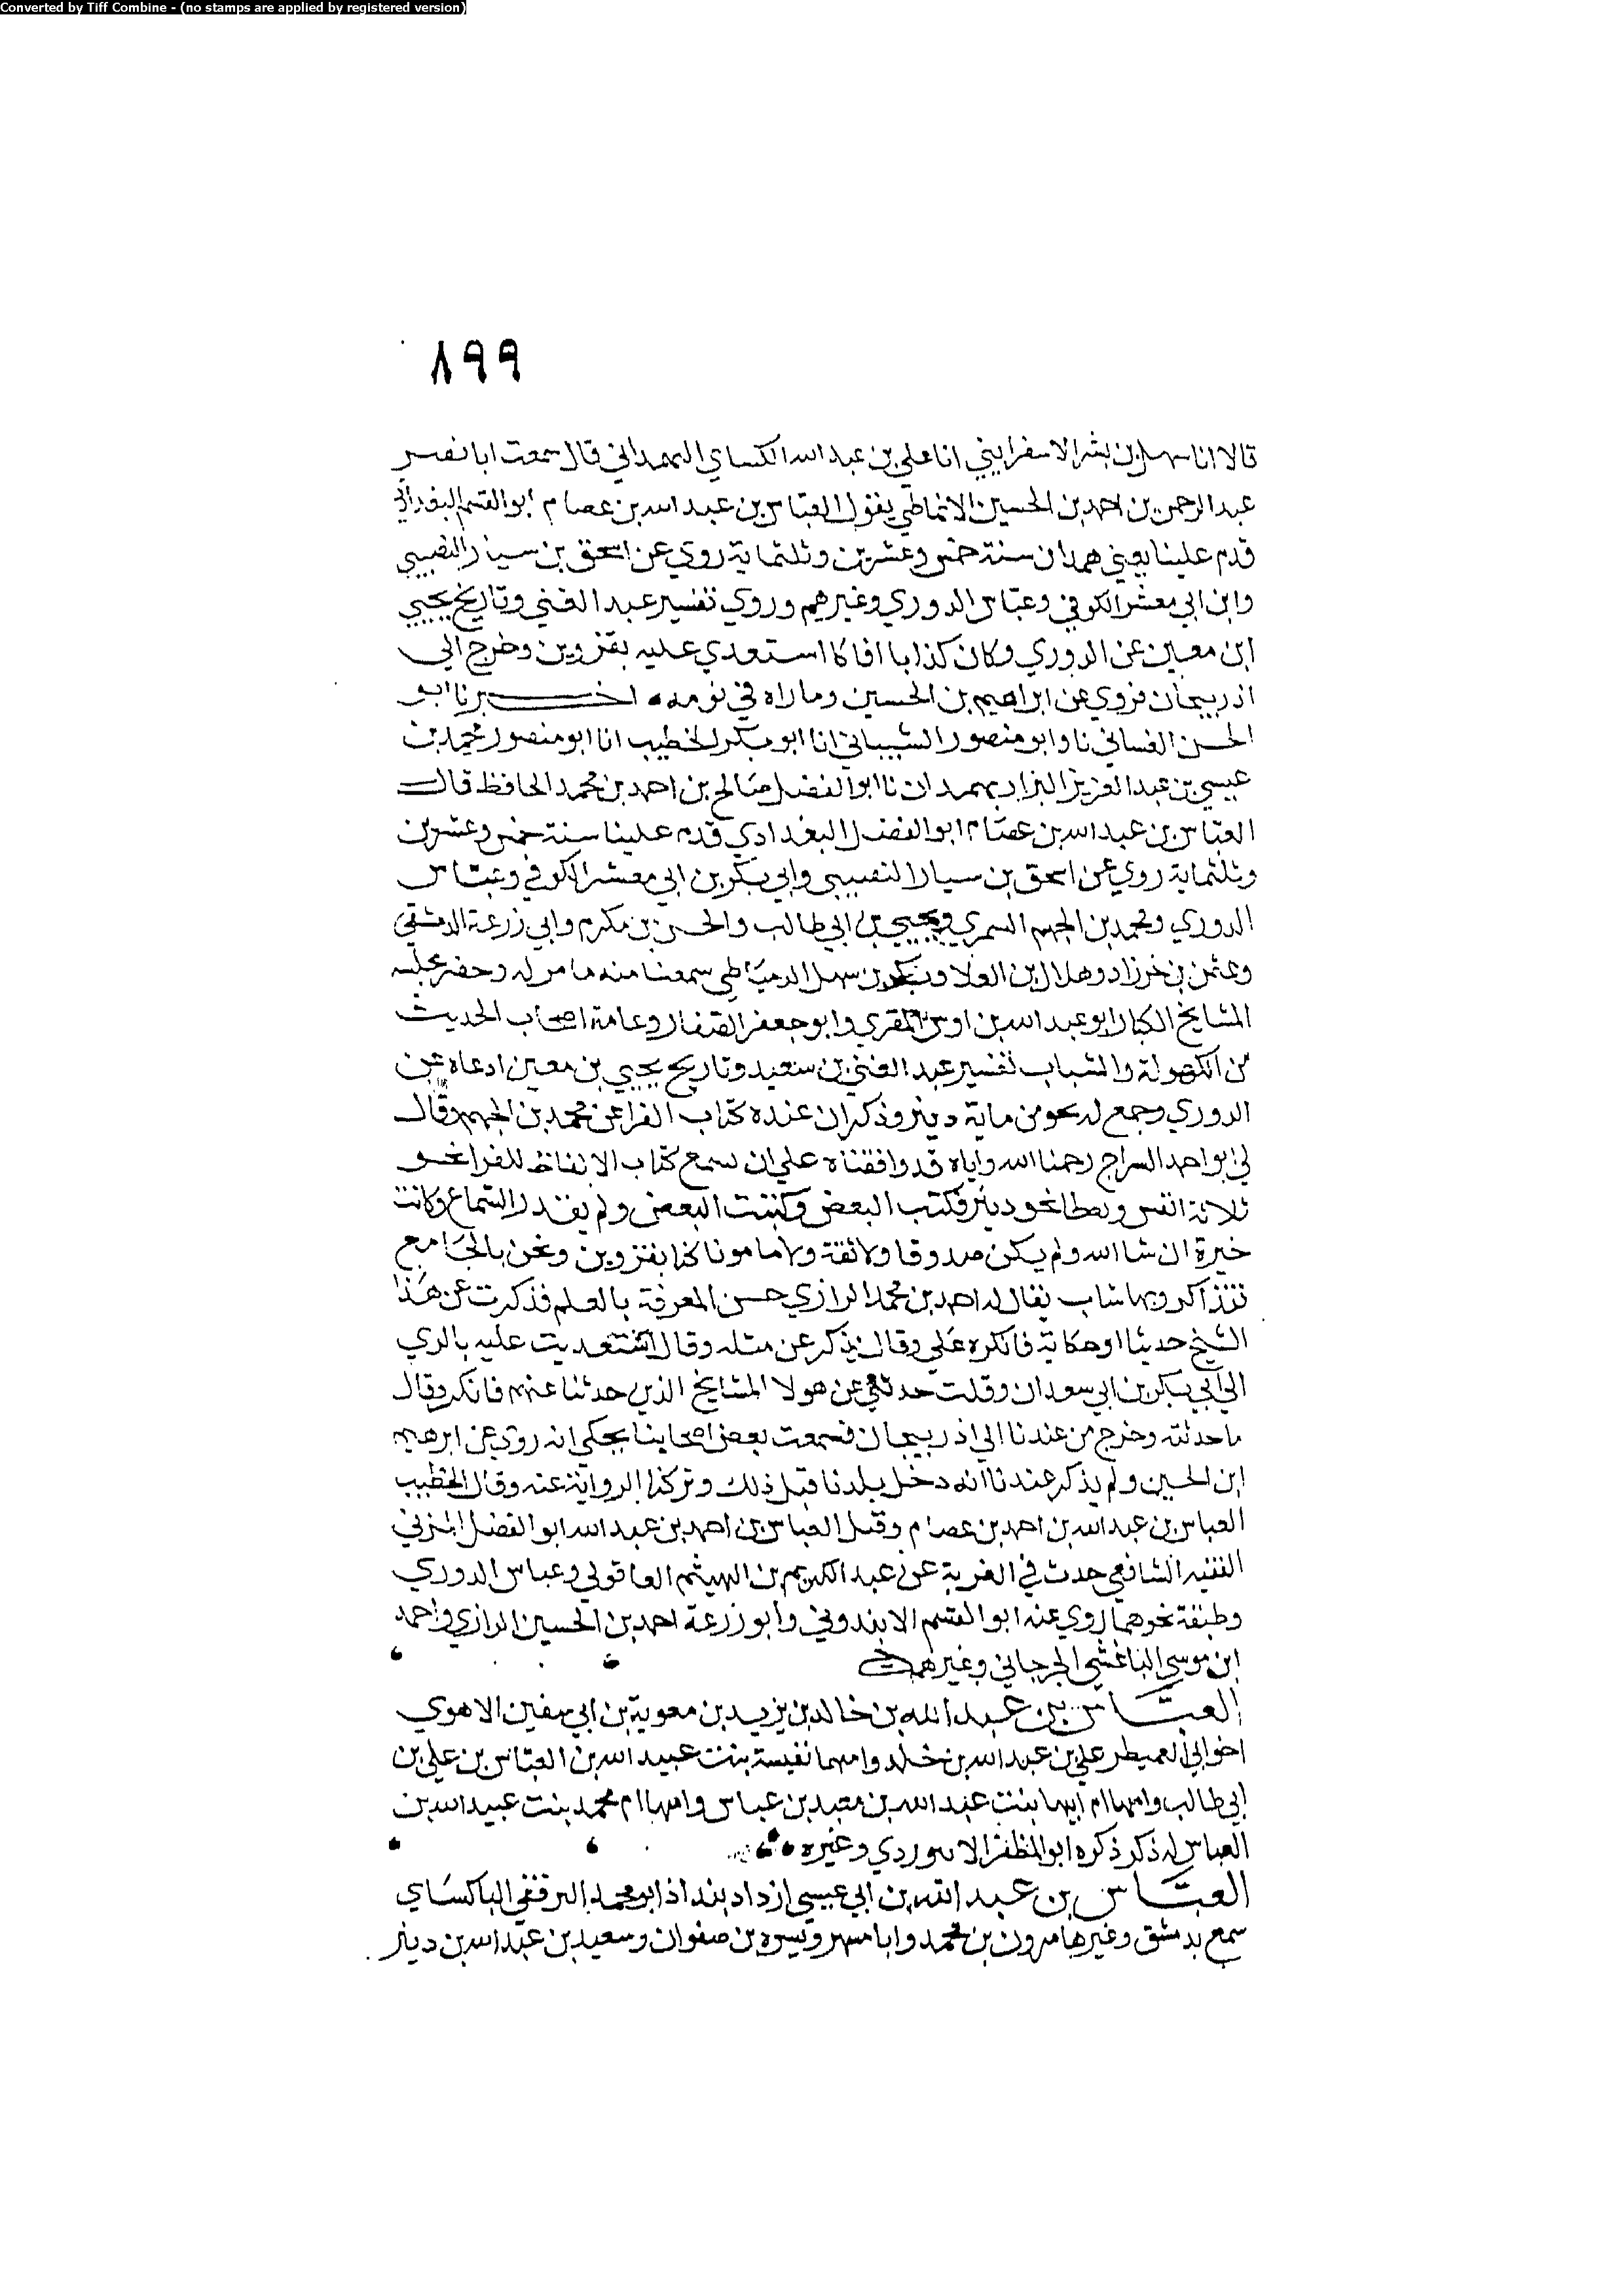 Converted by Tiff Combine - (no stamps are applied by registered version)
٨٩٩
قالا انا سهل بن بشر الاسفرايني انا علي بن عبد الله الكساي الهمداني قال سمعت ابا نصر
عبد الرحمن بن احمد بن الحسين الانماطي يقول العباس بن عبد الله بن عصام ابو القسم البغدادي
قدم علينا يعني همدان سنة خمس وعشرين وثلثماية روي عن اسحق بن سيار النصيبي
وابن ابي معشر الكوفي وعباس الدوري وغيرهم وروي تفسير عبد الغني وتاريخ يحيي
ابن معين عن الدوري وكان كذابا افاكا استعدي عليه بقزوين وخرج الي
اذربيجان فروي عن ابراهيم بن الحسين وما راه في نومه اخبرنا ابو
الحسن الغساني نا وابو منصور الشيباني انا ابو بكر الخطيب انا ابو منصور محمد بن
عيسي بن عبد العزيز البزار بهمدان نا ابو الفضل صالح بن احمد بن محمد الحافظ قال
العباس بن عبد الله بن عصام ابو الفضل البغدادي قدم علينا سنة خمس وعشرين
وثلثماية روي عن اسحق بن سيار النصيبي وابي بكر بن ابي معشر الكوفي وعباس
الدوري ومحمد بن الجهم السمري ويحيي بن ابي طالب والحسن بن مكرم وابي زرعة الدمشقي
وعثمن بن خرزاد وهلال بن العلا وبكر بن سهل الدمياطي سمعنا منه ما مر له وحضر مجلسه
المشايخ الكبار ابو عبد الله بن اوس المقري وابو جعفر الصفار وعامة اصحاب الحديث
من الكهولة والشباب تفسير عبد الغني بن سعيد وتاريخ يحيي بن معين ادعاه عن
الدوري وجمع له نحو من ماية دينر وذكر ان عنده كتاب الفرا عن محمد بن الجهم وقال
لي ابو احمد السراج رحمنا الله واياه قد وافقناه علي ان نسمع كتاب الالفاظ للفرا نحو
ثلاثة انفس ونعطا نحو دينر فكتب البعض وكتبت البعض ولم يقدر السماع وكانت
خيرة ان شا الله ولم يكن صدوقا ولا ثقة ولا مامونا كنا بقزوين ونحن بالجامع
نتذاكر وبها شاب يقال له احمد بن محمد الرازي حسن المعرفة بالعلم فذكرت عن هذا
الشيخ حديثا او حكاية فانكره علي وقال يذكر عن مثله وقال استعديت عليه بالري
الي ابي بكر بن ابي سعدان وقلت حدثني عن هولا المشايخ الذين حدثنا عنهم فانكر وقال
ما حدثته وخرج من عندنا الي اذربيجان فسمعت بعض اصحابنا يحكي انه روي عن ابرهيم
ابن الحسين ولم يذكر عندنا انه دخل بلدنا قبل ذلك وتركنا الرواية عنه وقال الخطيب
العباس بن عبد الله بن احمد بن عصام وقيل العباس بن احمد بن عبد الله ابو الفضل المزني
الفقيه الشافعي حدث في الغربة عن عبد الكريم بن الهيثم العاقولي وعباس الدوري
وطبقة نحوهما روي عنه ابو القسم الابندوني وابو زرعة احمد بن الحسين الرازي واحمد
ابن موسي الباغشي الجرجاني وغيرهم
العباس بن عبد الله بن خالد بن يزيد بن معوية بن ابي سفين الاموي
اخو ابي العميطر علي بن عبد الله بن خلد وامهما نفيسة بنت عبيد الله بن العباس بن علي بن
ابي طالب وامها ام ابيها بنت عبد الله بن معبد بن عباس وامها ام محمد بنت عبيد الله بن
العباس له ذكر ذكره ابو المظفر الابيوردي وغيره
العباس بن عبد الله بن ابي عيسي ازداد بنداذ ابو محمد الترقفي الباكساي
سمع بدمشق وغيرها مرون بن محمد وابا مسهر ويسرة بن صفوان وسعيد بن عبد الله بن دينر